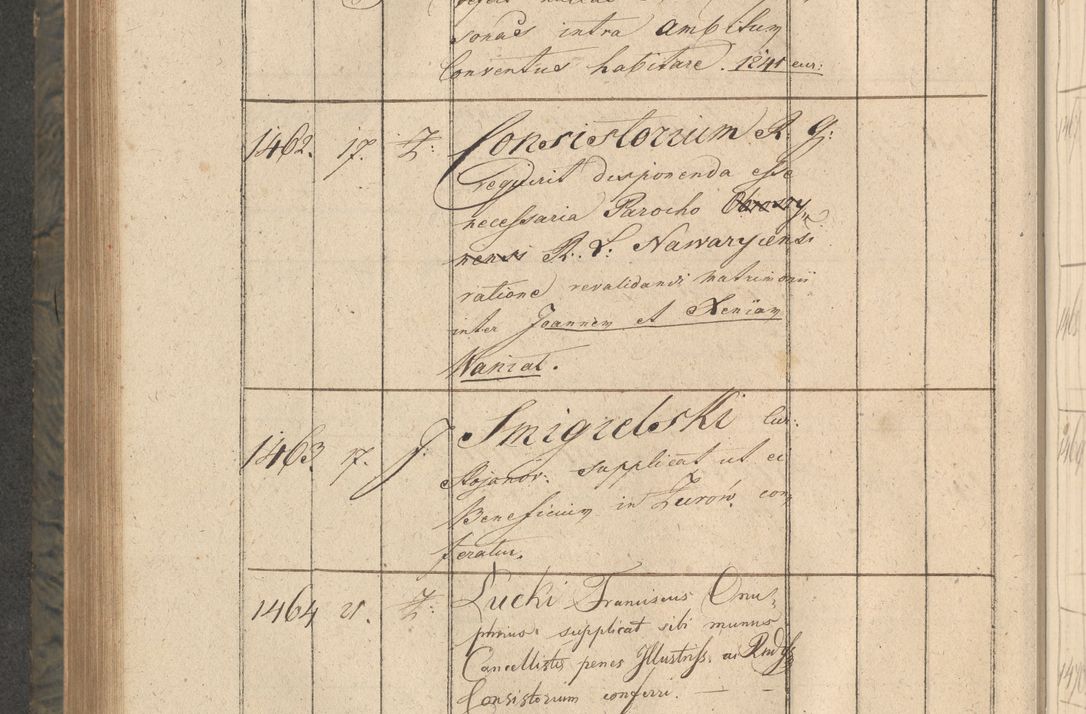 sonas intra ambitum
Conventus habitare. 1241 cur:
1462. 17. Z: Consistorium R. G:
requirit disponenda esse
necessaria Parocho
nensi R. L: Nawaryiensi
ratione revalidandi matrimonii
inter Joannem et Xeniam
Waniat.
1463. 17. J: Smigielski Cur:
Stojanov: supplicat ut ei
Beneficium in Zurów. con
feratur.
1464 21. Z: Lucki Franciscus Onu„
phrius supplicat sibi munus
Cancellistæ penes Illustriss. ac Rndss
Consistorium conferri. — —